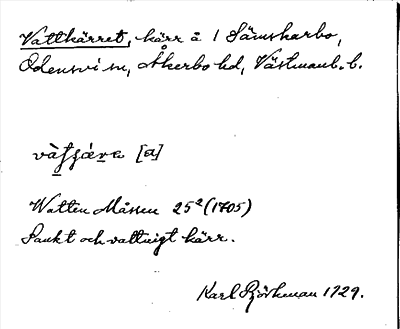 Vattkärret, kärr å / Sämskarbo,
Odensvi sn, Åkerbo hd, Västmanl. l.
[a]
Watten Måssen 25² (1705)
Sankt och vattnigt kärr.
Karl Björkman 1929.